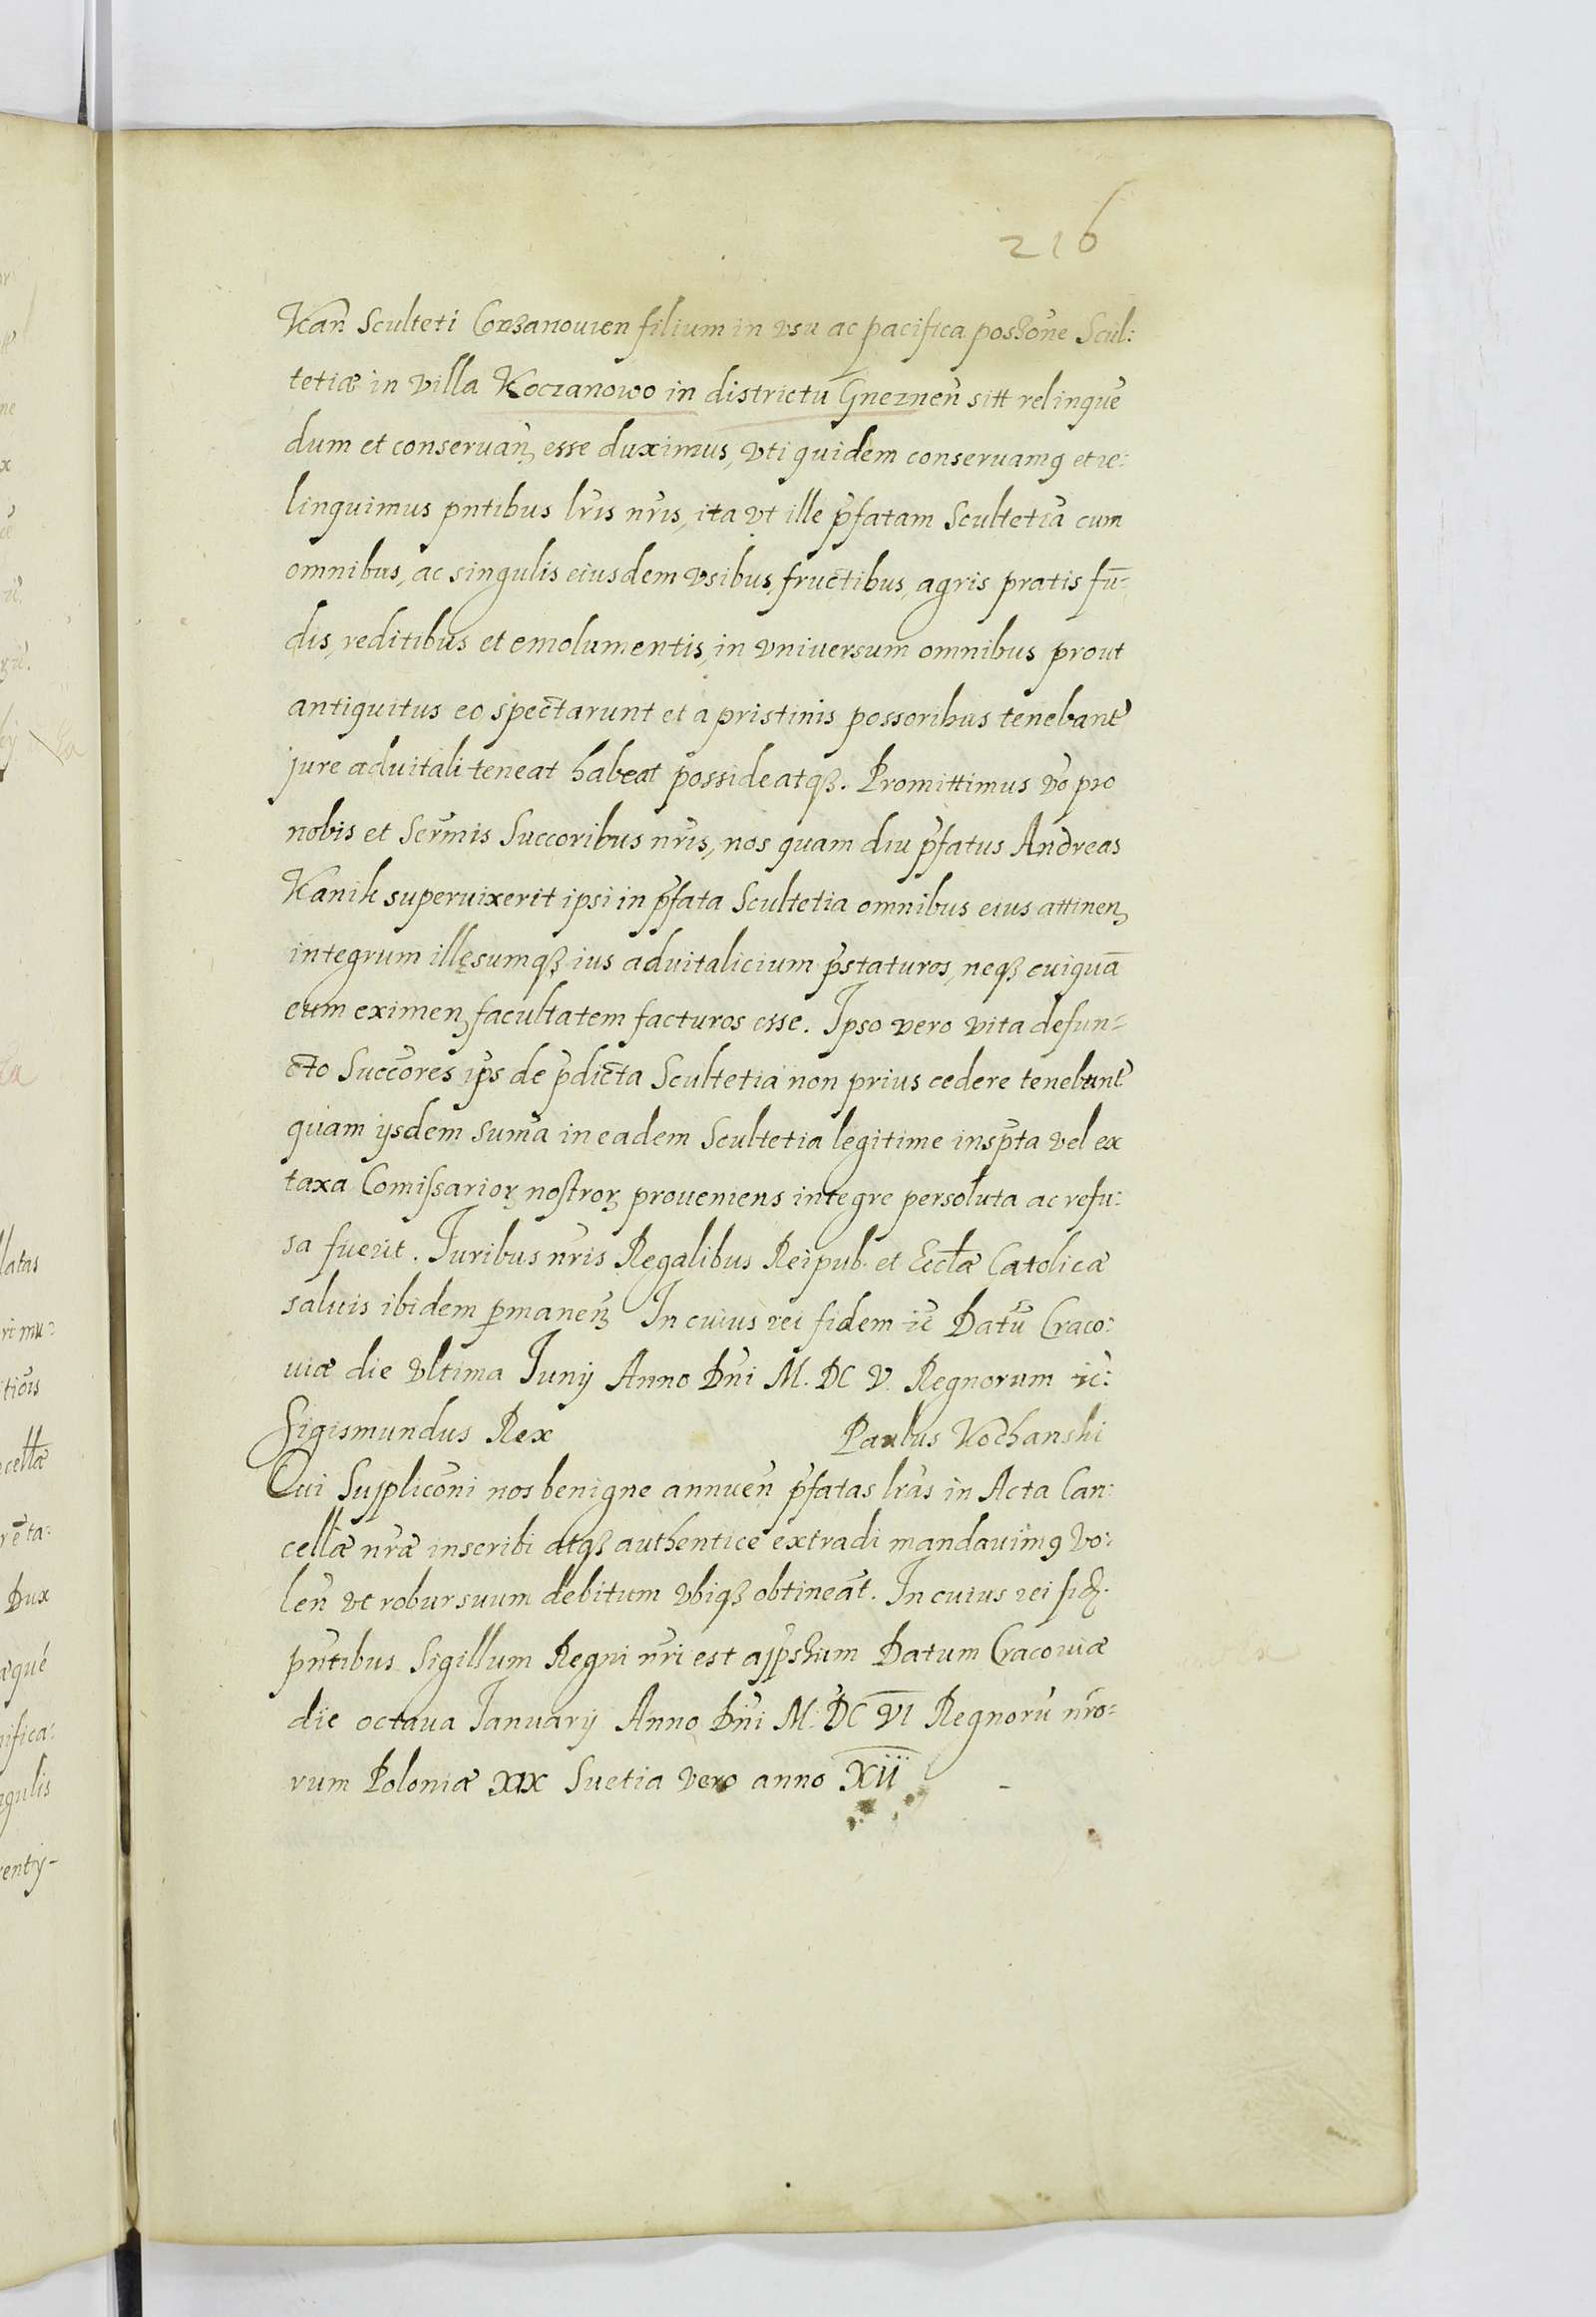 216
Kan̄ Sculteti Coczanowien filium in vsu ac pacifica possõne Scul:
tetiæ in villa Koczanowo in districtu Gneznen̄ sitt relinquē
dum et conseruan̄ꝫ esse duximus, vti quidem conseruamꝯ et re:
linquimus pn̄tibus lr̄is nr̄is, ita vt ille p̄fatam Scultetiā cum
omnibus, ac singulis eiusdem vsibus, fructibus, agris pratis fū-
dis, reditibus et emolumentis, in vniuersum omnibus prout
antiquitus eo spectarunt et a pristinis possoribus tenebant̃
jure aduitali teneat habeat possideatqꝫ. Promittimus vō pro
nobis et Sermis Succoribus nr̄is, nos quam diu p̄fatus Andreas
Kanik superuixerit ipsi in p̄fata Scultetia omnibus eius attinenꝫ
integrum illęsumqꝫ ius aduitalicium p̄staturos, neqꝫ cuiquā
eum eximenꝫ facultatem facturos esse. Ipso vero vita defun-
cto Succores ips̄ de p̄dicta Scultetia non prius cedere tenebunt̃
quam ijsdem suma in eadem Scultetia legitime insp̄ta vel ex
taxa Comissarioꝝ nostroꝝ proueniens integre persoluta ac refu:
sa fuerit. Iuribus nr̄is Regalibus Reipub. et Eccłæ Catolicæ
saluis ibidem p̱manen̄ꝫ In cuius rei fidem ꝛc̄ Datū Craco:
uiæ die vltima Iunij Anno Dn̄i M. DC V. Regnorum ꝛc̄:
Sigismundus Rex Paulus Kochanski
Cui Supplicõni nos benigne annuen̄ p̄fatas lr̄as in Acta Can:
cellæ nr̄æ inscribi atqꝫ authentice extradi mandauimꝯ vo:
len̄ vt robur suum debitum vbiqꝫ obtineāt. In cuius rei fidꝫ.
pn̄tibus Sigillum Regni nr̄i est app̄shum Datum Cracouiæ
die octaua Ianuarij Anno Dn̄i M. DC VI Regnorū nr̄o-
rum Poloniæ XIX Suetia vero anno XII